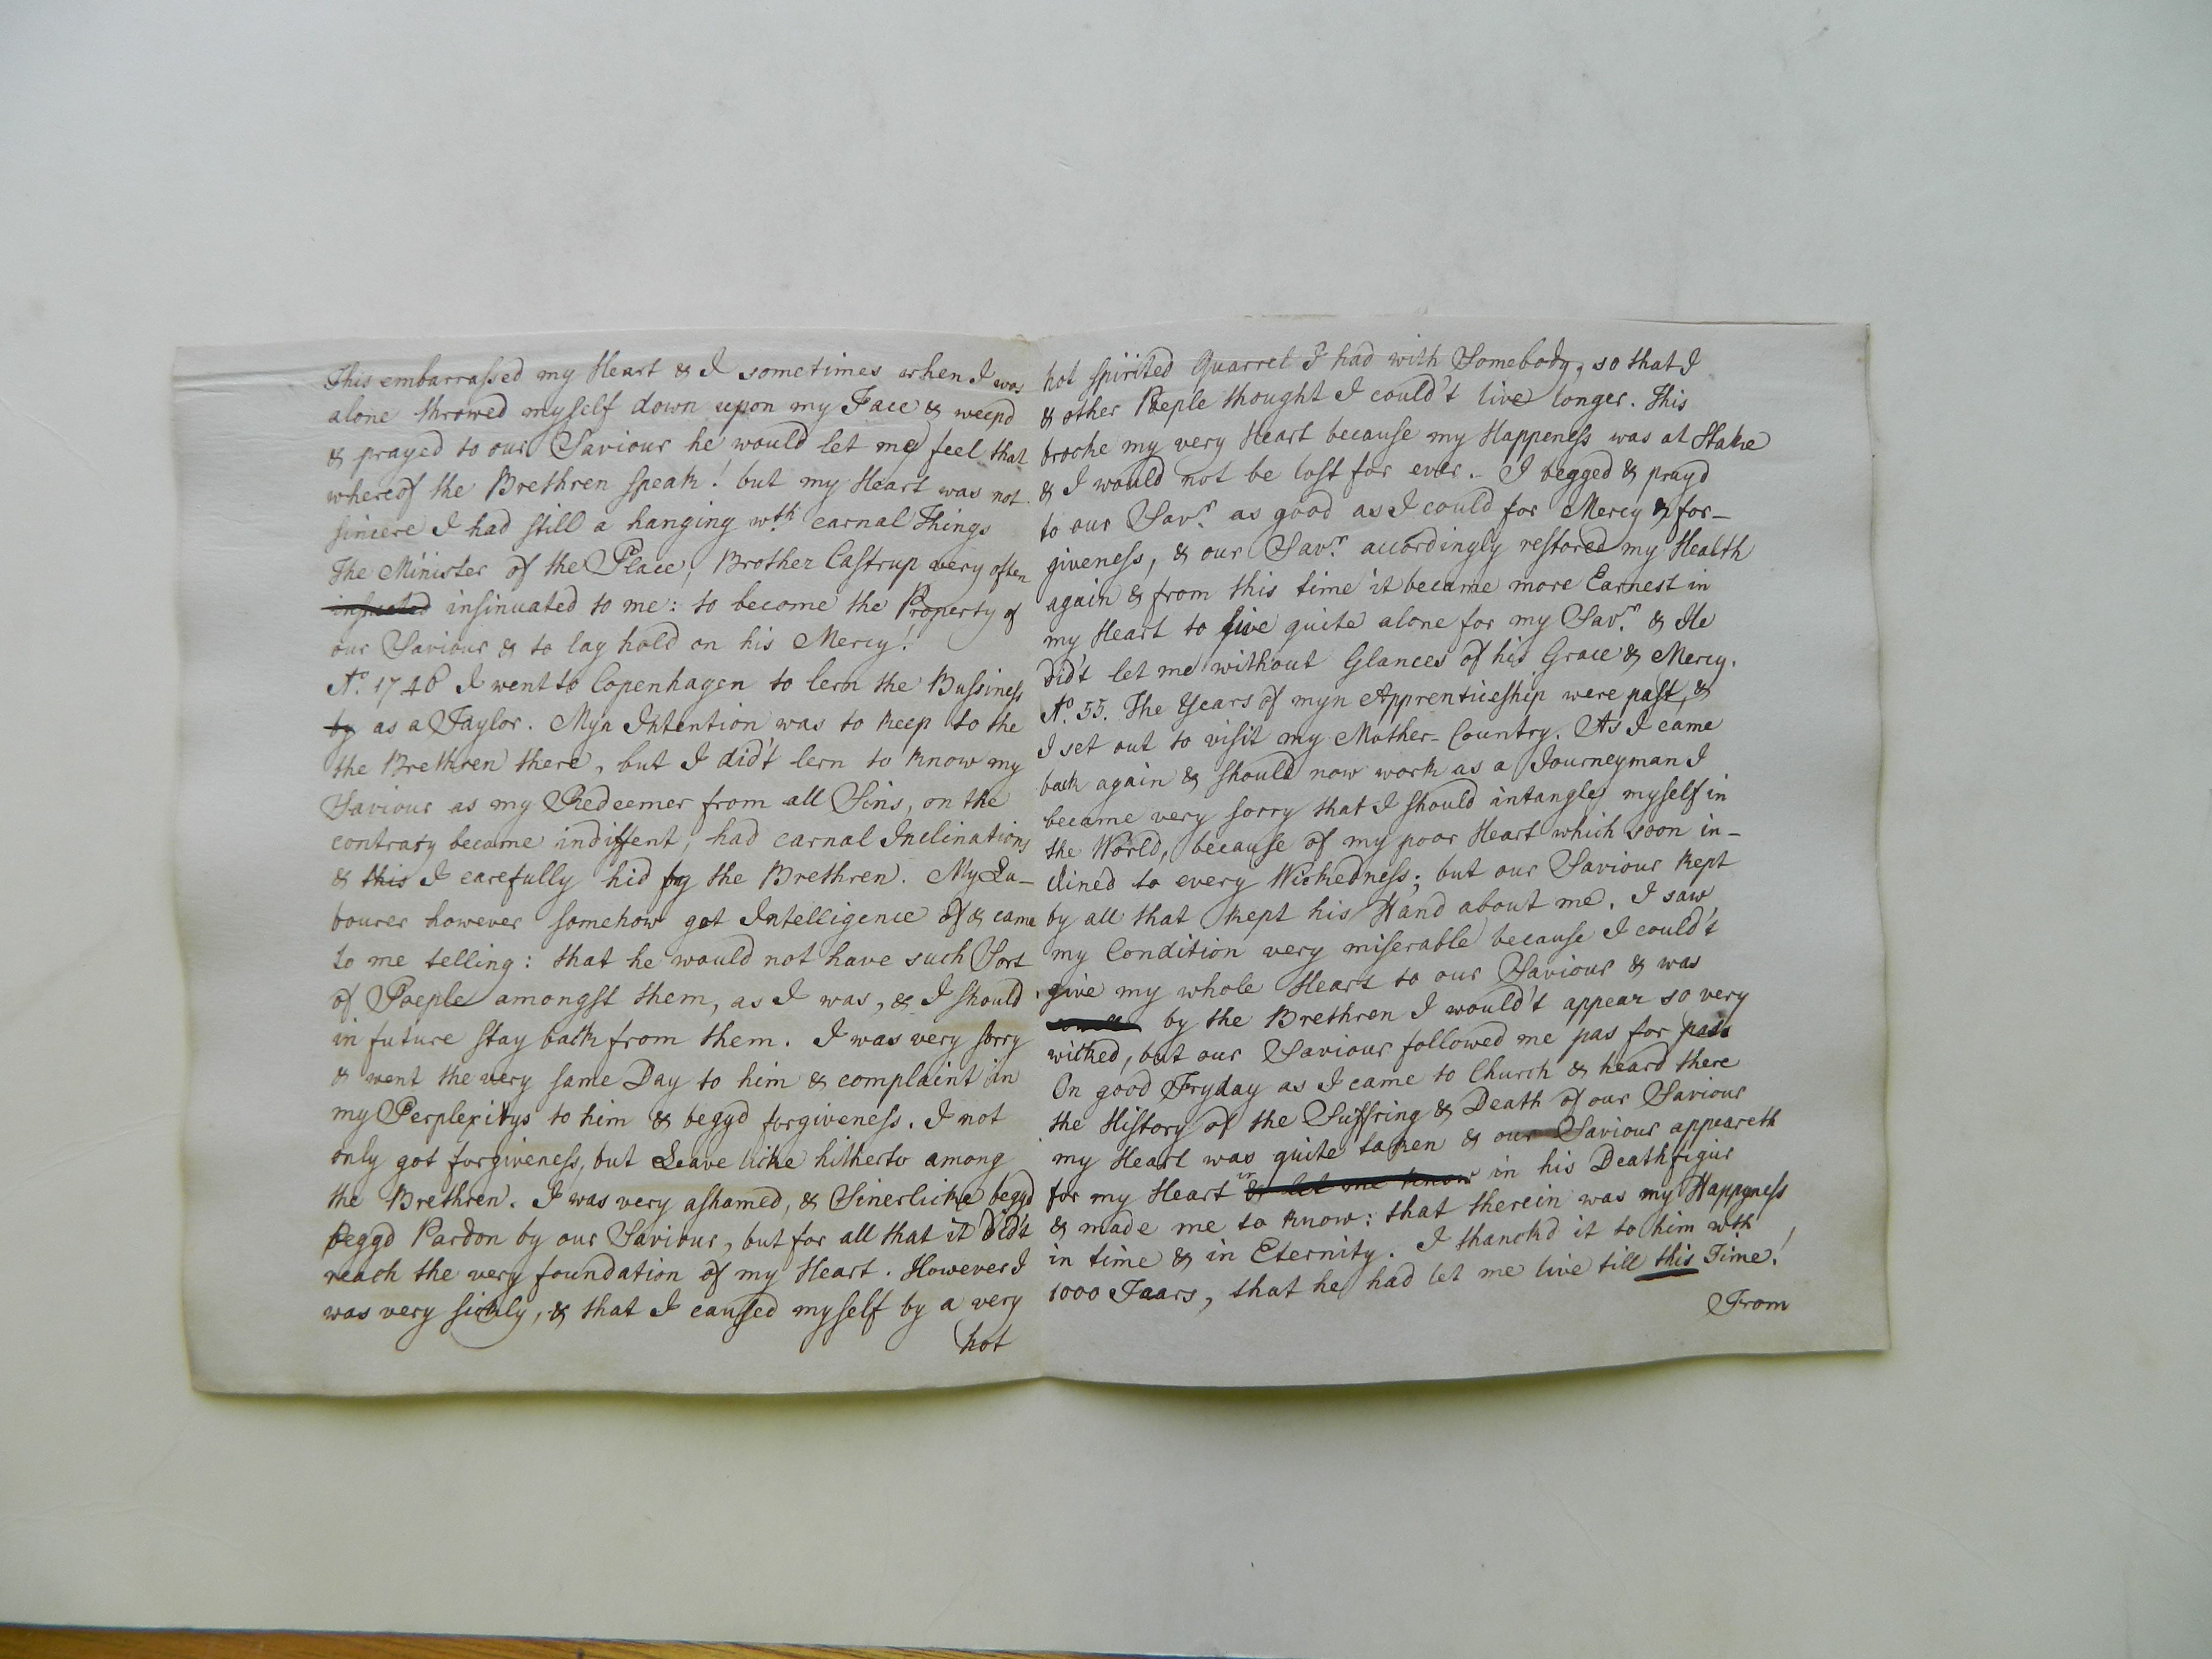 This embarrassed my Heart & I sometimes when I was
alone throwed myself down upon my Face & weepd
& prayed to our Saviour he would let me feel that
whereof the Brethren speak! but my Heart was not
sincere I had still a hanging wth. carnal Things
The Minister of the Place, Brother Castrup very often
insinuated to me: to become the Property of
our Saviour & to lay hold on his Mercy!
Ao. 1746 I went to Copenhagen to lern the Bussiness
by as a Taylor. Myn Intention was to keep to the
the Brethren there, but I did't lern to know my
Saviour as my Redeemer from all Sins, on the
contrary became indiffent, had carnal Inclinations
& this I carefully hid by the Brethren. My La-
bourer however somehow got Intelligence of & came
to me telling: that he would not have such Sort
of Paeple amongst them, as I was, & I should
in future stay back from them. I was very sorry
& went the very same Day to him & complaint in
my Perplexitys to him & beggd forgiveness. I not
only got forgiveness, but Leave licke hitherto among
the Brethren. I was very ashamed, & Sinerlicke beggd
beggd Pardon by our Saviour, but for all that it did't
reach the very foundation of my Heart. However I
was very sickly, & that I caused myself by a very
hot
hot spirited Quarrel I had with Somebody, so that I
& other Paeple thought I could't live longer. This
brooke my very Heart because my Happeness was at Stake
& I would not be lost for ever. I begged & prayd
to our Savr. as good as I could for Mercy & for-
giveness, & our Savr. accordingly restored my Health
again & from this time it became more Earnest in
my Heart to live quite alone for my Savr. & He
did't let me without Glances of his Grace & Mercy.
Ao. 55. The Years of myn Apprenticeship were past, &
I set out to visit my Mother-Country. As I came
back again & should now work as a Journeyman I
became very sorry that I should intangle myself in
the World, because of my poor Heart which soon in-
clined to every Wickedness; but our Saviour kept
by all that kept his Hand about me. I saw
my Condition very miserable because I could't
give my whole Heart to our Saviour & was
by the Brethren I would't appear so very
wicked, but our Saviour followed me pas for pass
On good Fryday as I came to Church & heard there
the History of the Suffring & Death of our Saviour
my Heart was quite taken & our Saviour appeareth
for my Heart in & let me know in his Deathfigur
& made me to know: that therein was my Happyness
in time & in Eternity. I thanckd it to him wth
1000 Taars, that he had let me live till this Time!
From